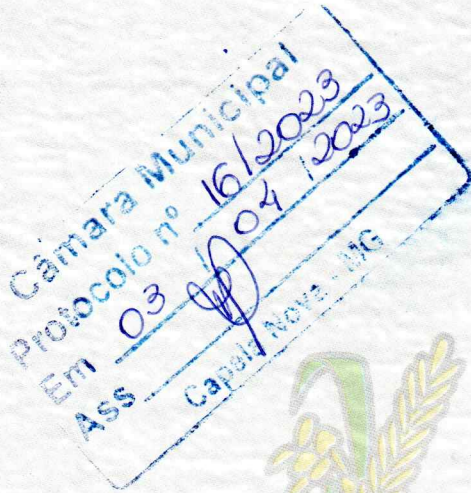 Câmara Municipal
Protocolo nº 16/2023
Em 03 / 04 / 2023
Ass
Capela Nova - MG